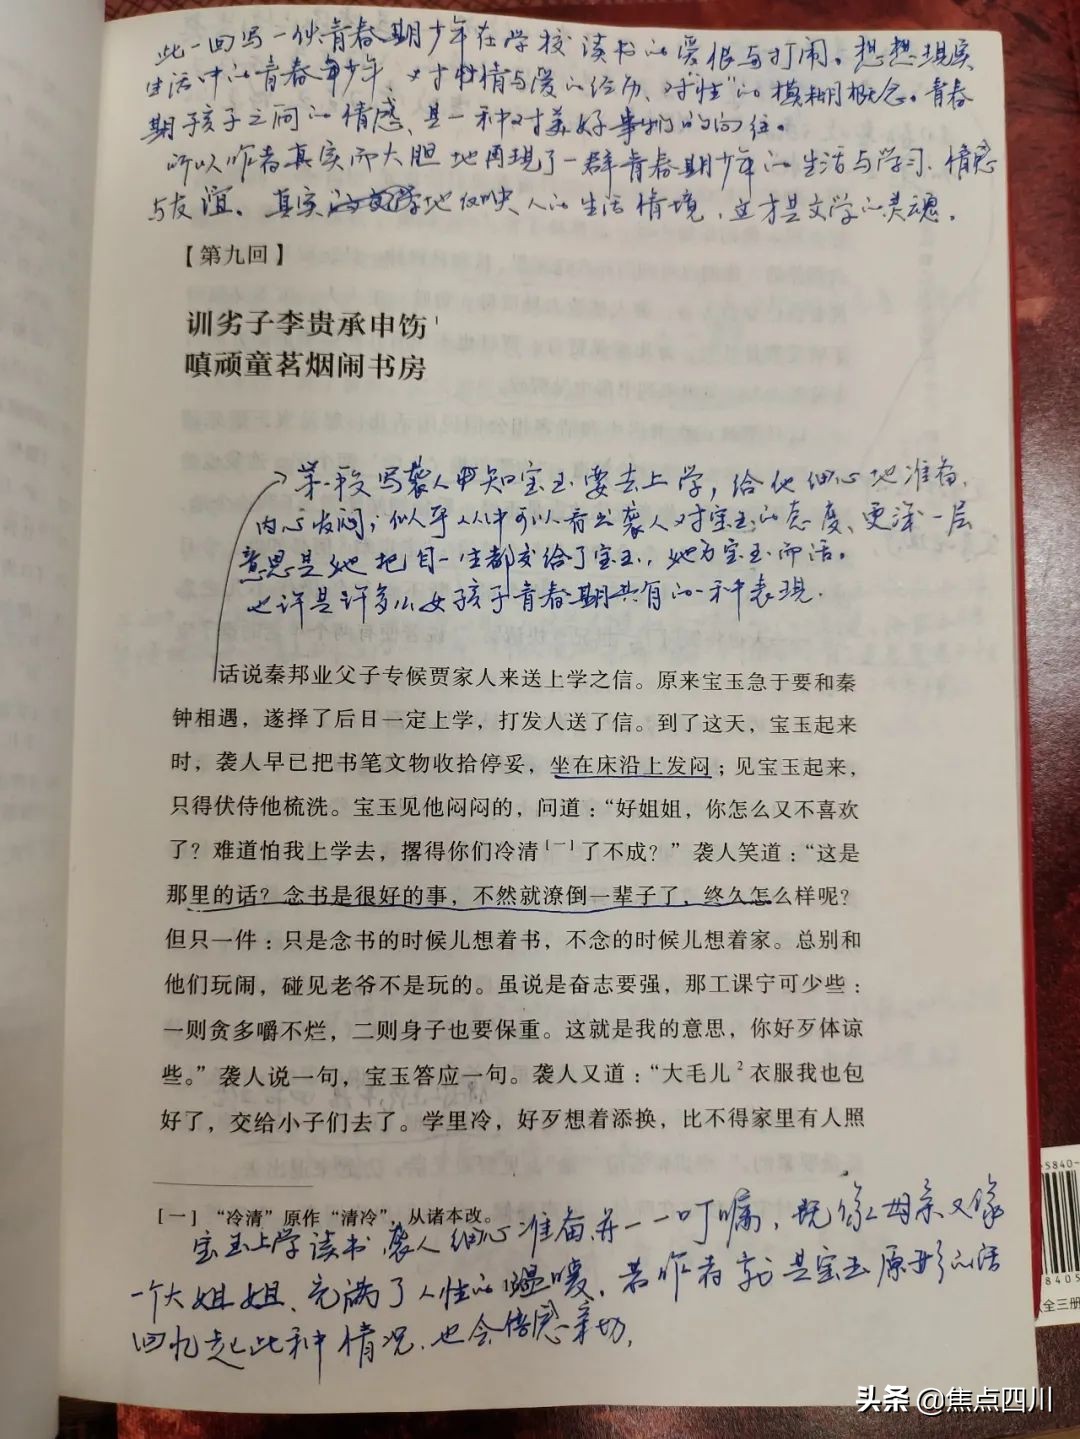 此一回写一伙青春期少年在学校读书的爱恨与打闹。想想现实
生活中的青春年少年，对性情与爱的经历、对"性"的模糊概念。青春
期孩子之间的情感、是一种对美好事物的向往。
所以作者真实而大胆地再现了一群青春期少年的生活与学习、情感
与友谊。真实地反映人的生活情境，这才是文学的灵魂。
【第九回】
训劣子李贵承申饬1
嗔顽童茗烟闹书房
第一段写袭人知宝玉要去上学，给他细心地准备，
内心发闷；似乎从中可以看出袭人对宝玉的态度、更深一层
意思是她把自一生都交给了宝玉，她为宝玉而活。
也许是许多女孩子青春期共有的一种表现.
话说秦邦业父子专候贾家人来送上学之信。原来宝玉急于要和秦
钟相遇，遂择了后日一定上学，打发人送了信。到了这天，宝玉起来
时，袭人早已把书笔文物收拾停妥，坐在床沿上发闷；见宝玉起来，
只得伏侍他梳洗。宝玉见他闷闷的，问道：“好姐姐，你怎么又不喜欢
了？难道怕我上学去，撂得你们冷清[一]了不成？”袭人笑道：“这是
那里的话？念书是很好的事，不然就潦倒一辈子了，终久怎么样呢？
但只一件：只是念书的时候儿想着书，不念的时候儿想着家。总别和
他们玩闹，碰见老爷不是玩的。虽说是奋志要强，那工课宁可少些：
一则贪多嚼不烂，二则身子也要保重。这就是我的意思，你好歹体谅
些。”袭人说一句，宝玉答应一句。袭人又道：“大毛儿2衣服我也包
好了，交给小子们去了。学里冷，好歹想着添换，比不得家里有人照
[一] “冷清”原作“清冷”，从诸本改。
宝玉上学读书袭人细心准备并一一叮嘱，既像母亲又像
一个大姐姐、充满了人性的温暖，若作者就是宝玉原形的话
回忆起此种情况，也会倍感亲切，
5840-
8405
全三册
头条 @焦点四川